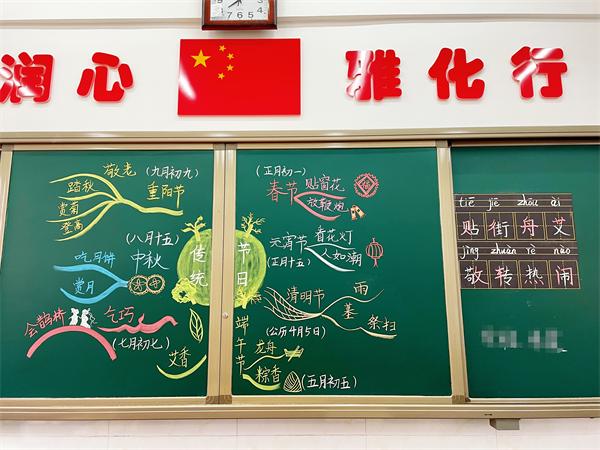 润心
雅化行
敬老
(九月初九)
踏秋
赏菊
登高
重阳节
(八月十五)
吃月饼
中秋
赏月
会鹊桥
乞巧
(七月初七)
艾香
传统
节日
(正月初一)
春节
贴窗花
放鞭炮
元宵节
看花灯
人如潮
(正月十五)
清明节
雨
墓
祭扫
(公历4月5日)
端午节
龙舟
粽香
(五月初五)
tiē jiē zhōu ài
贴街舟艾
jìng zhuàn rè nào
敬转热闹